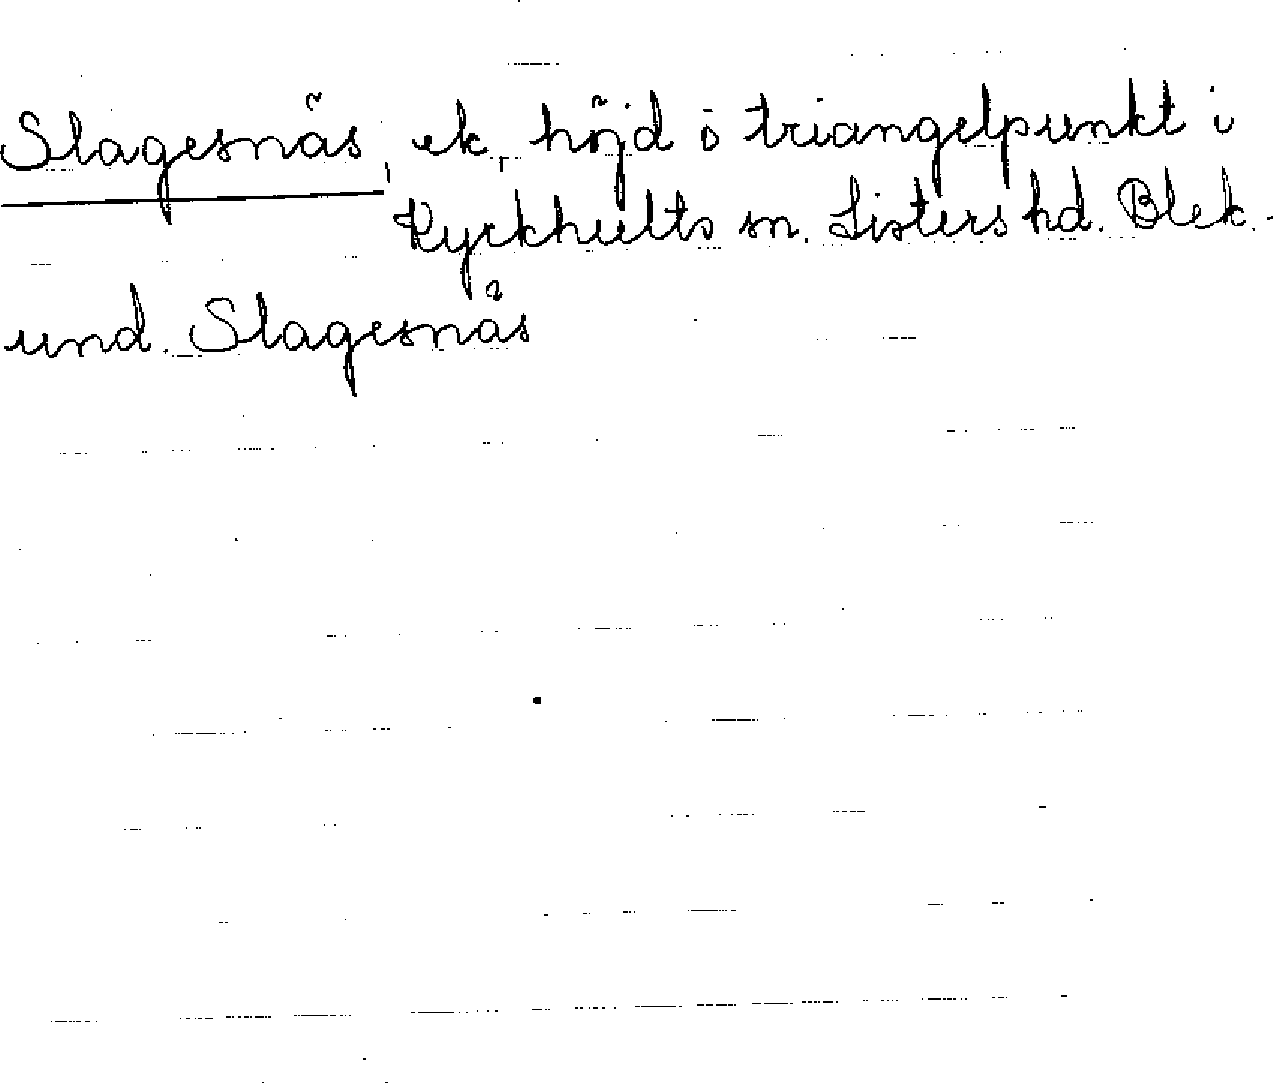 Slagesnäs, ek, höjd o triangelpunkt i
Kyrkhults sn. Listers hd. Blek.
und. Slagesnäs